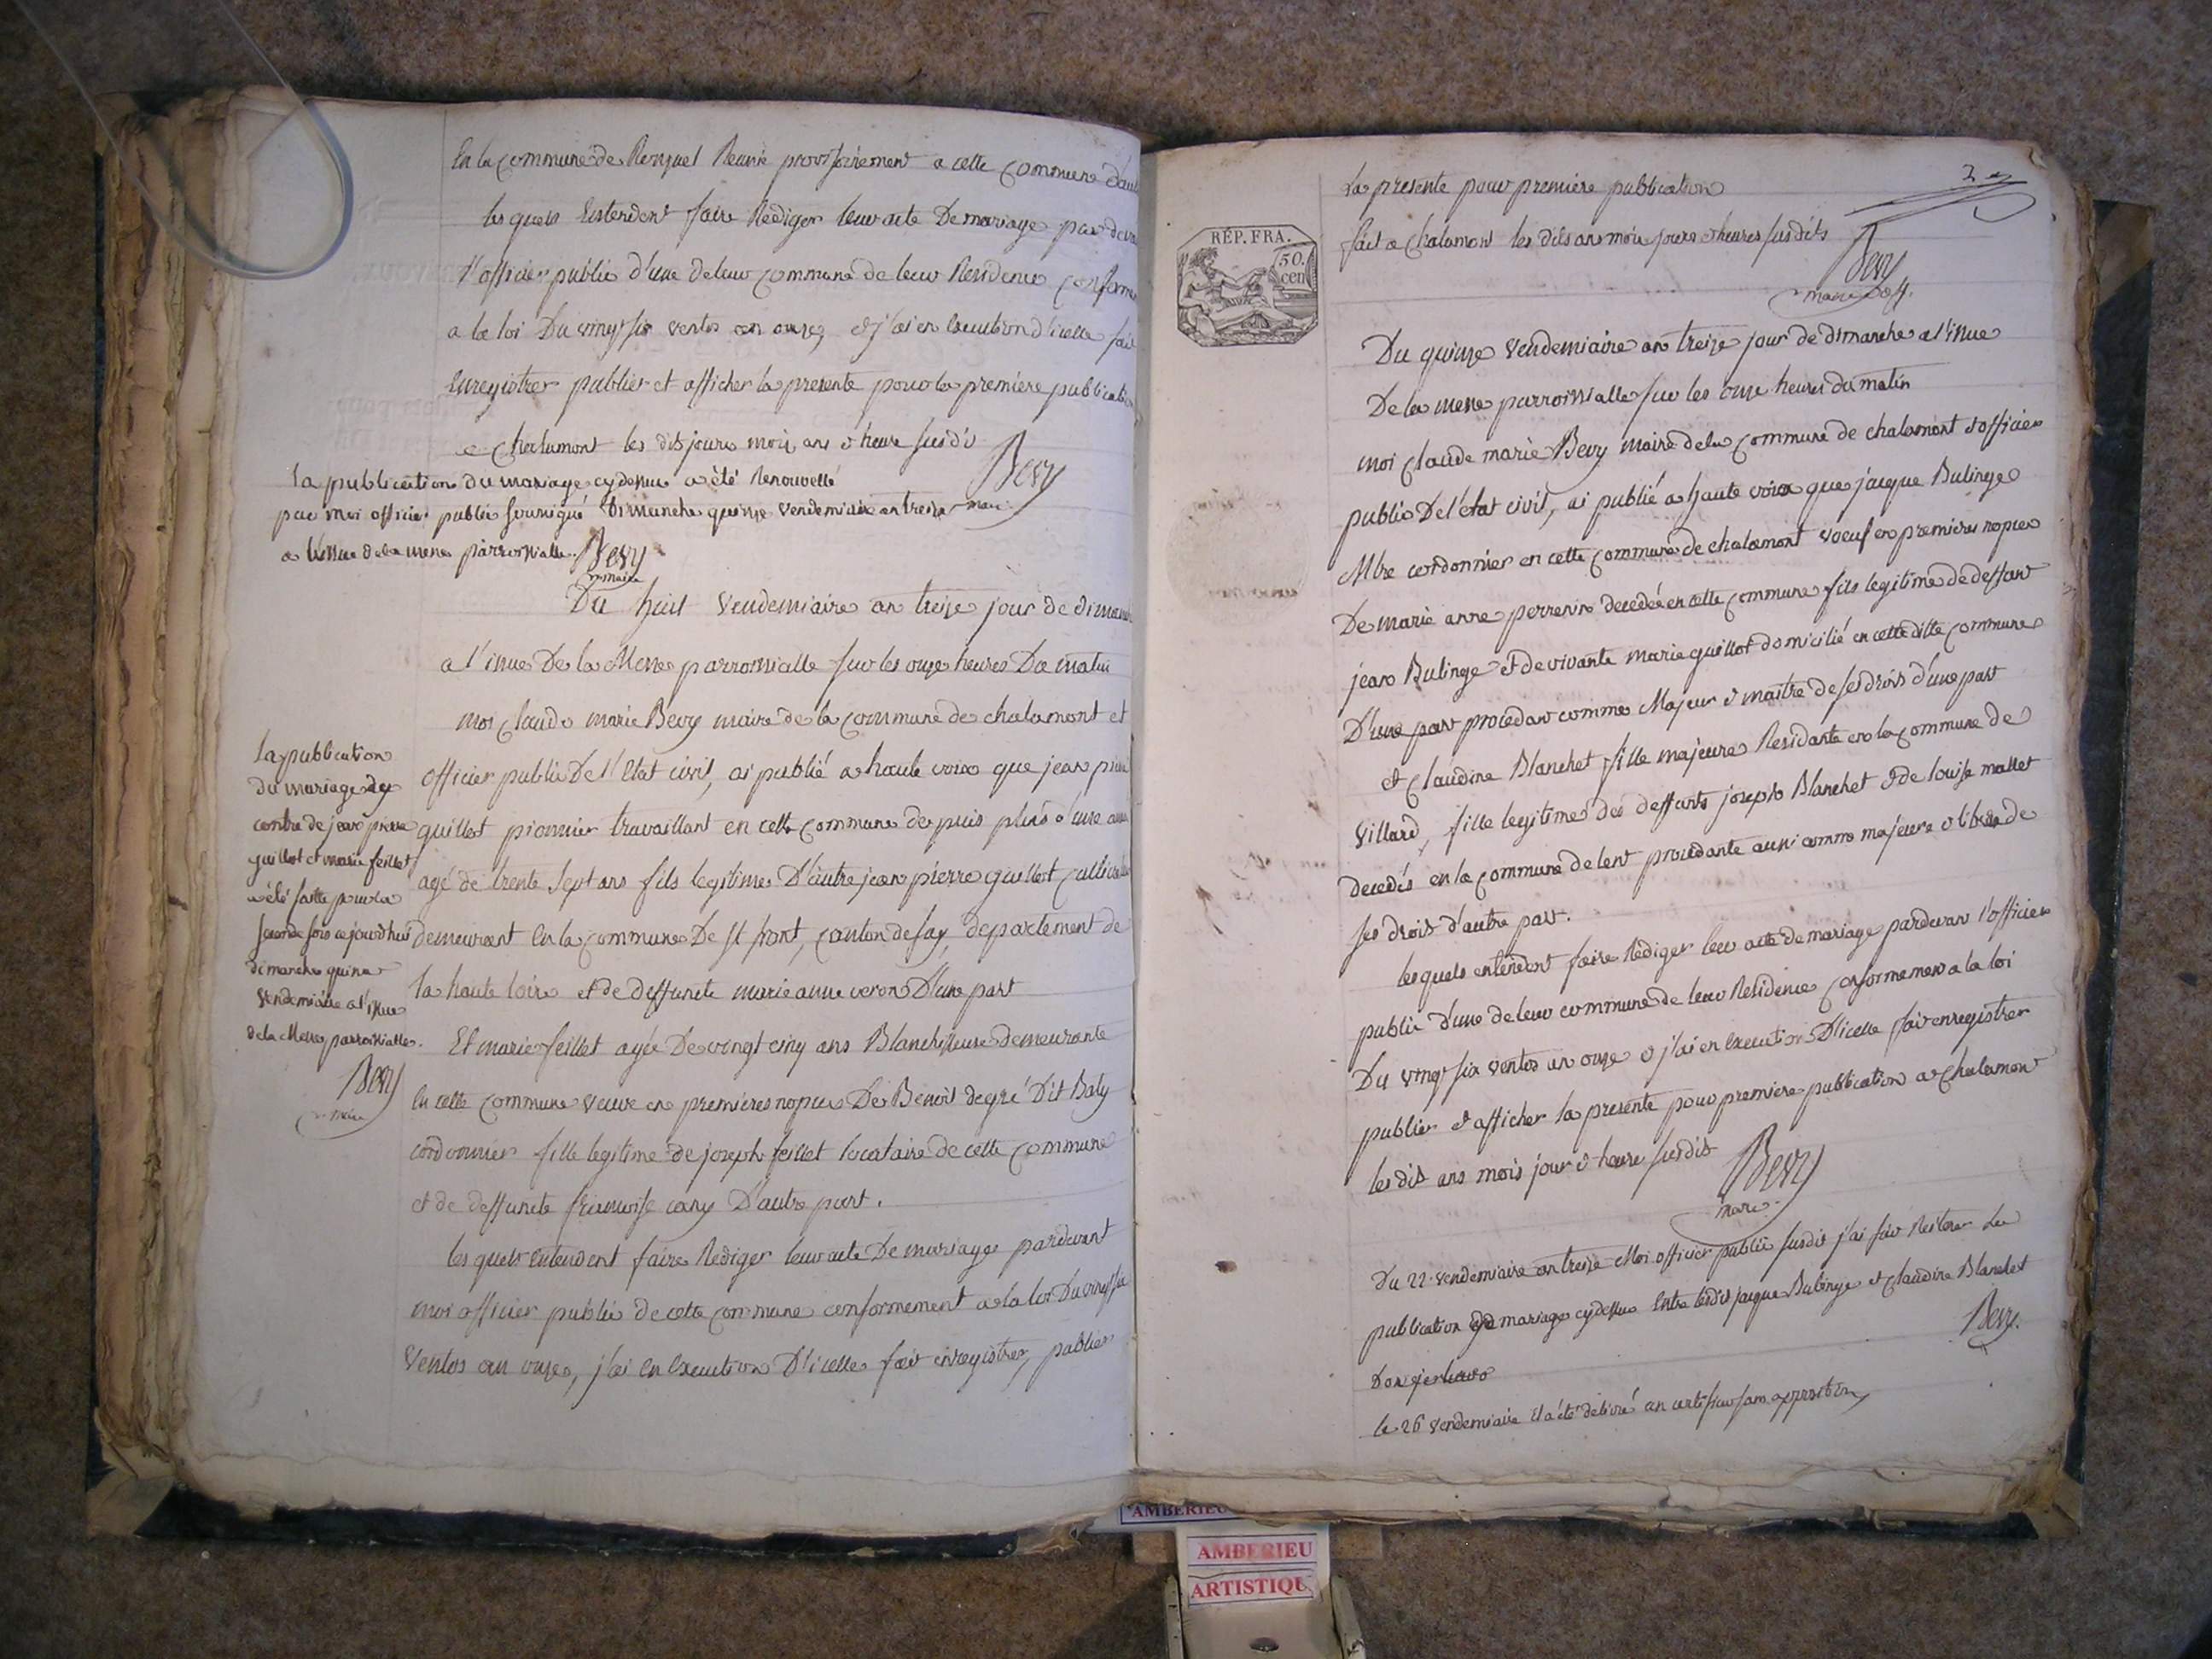 En la commune de Ronzuel Reunie provisoirement a cette commune d'aut
les quels Entendent faire Rediger leur acte De mariage par deva
l'officier public d'une de leur commune de leur Residence conforme
a la loi Du vingt six ventos an onze, et j'ai en Execution d'icelle fait
Enregistrer publier et afficher la presente pour la premiere publicatio
a Chalamont les dits jours mois ans & heure susdit
Bevy
maire
la publication du mariage cydessus a été Renouvellé
par moi officier public soussigné Dimanche quinze vendemiaire an treize
a l'issue de la messe parroissialle. Bevy
maire
Du huit vendemiaire an treize jour de dimanc
a l'issue De la Messe parroissialle sur les onze heures Du matin
moi Claude marie Bevy maire de la commune de chalamont et
officier public De l'Etat civil, ai publié a haute voix que jean pierre
guillot pionnier travaillant en cette commune depuis plus d'une anné
agé de trente Sept ans fils legitime D'autre jean pierre guillot cultivateu
demeurant En la commune De St front, canton de fay, departement de
la haute loire et de deffunte marie anne veron D'une part
Et marie feillet agée De vingt cinq ans Blanchisseuse demeurante
En cette commune veuve en premieres nopces De Benoit degré Dit Baly
cordonnier fille legitime de joseph feillet locataire de cette commune
et de deffunte francoise cany D'autre part.
les quels Entendent faire Rediger leur acte De mariage pardevant
moi officier public de cette commune conformement a la loi Du vingt six
ventos an onze, j'ai En Execution D'icelle fait enregistrer, publier
la publication
du mariage cy
contre de jean pierre
guillot et marie feillet
a été faitte pour la
seconde fois ce jourd'hui
dimanche quinze
vendemiaire a l'issue
de la Messe parroissialle.
Bevy
maire
2
La presente pour premiere publication
fait a Chalamont les dits ans mois jours & heures susdits
Bevy
maire & off.
RÉP. FRA.
50.
cen
Du quinze vendemiaire an treize jour de dimanche a l'issue
De la messe parroissialle sur les onze heures du matin
moi Claude marie Bevy maire de la commune de chalamont & officier
public De l'état civil, ai publié a haute voix que jacque Bulinge
Mtre cordonnier en cette commune de chalamont voeuf en premieres nopces
De marie anne perrenin decedée en cette commune fils legitime de deffunt
jean Bulinge et de vivante marie guillot domicilié en cette ditte commune
D'une part procedant comme Majeur & maitre de ses droits d'une part
et Claudine Blanchet fille majeure Residante en la commune de
Villard, fille legitime des deffunts joseph Blanchet & de louise mallet
decedés en la commune de lent procedante aussi comme majeure & libre de
ses droits d'autre part.
lesquels entendent faire Rediger leur acte de mariage pardevant l'officier
public d'une de leur commune de leur Residence conformement a la loi
Du vingt six ventos an onze & j'ai en Execution D'icelle fait enregistrer
publier & afficher la presente pour premiere publication a Chalamont
les dits ans mois jour & heure susdits
Bevy
maire
Du 22 vendemiaire an treize Moi officier public susdit j'ai fait Reiterer la
publication de mariage cydessus Entre lesdits jacque Bulinge et Claudine Blanchet
Bevy.
le 26 vendemiaire il a été delivré un certificat sans opposition
AMBERIEU
AMBERIEU
ARTISTIQU